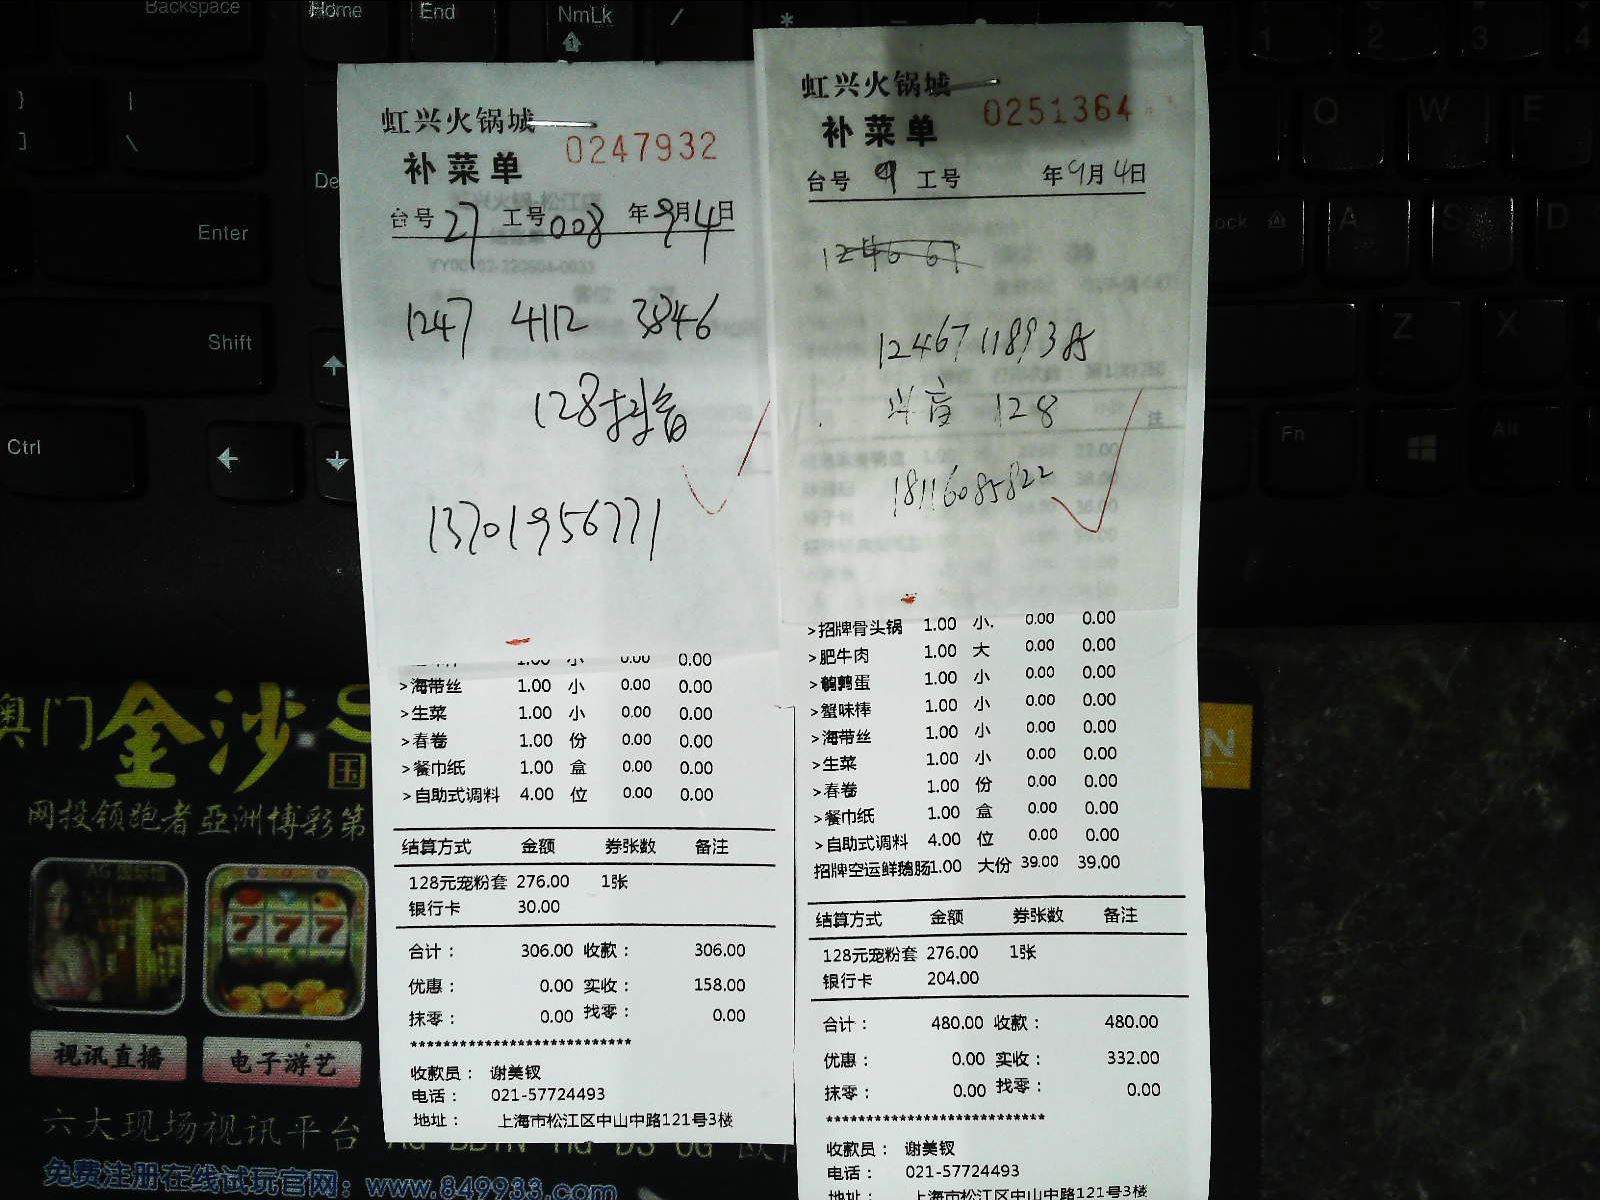 Backspace
Home
End
NmLk
/
*
}
]
|
\
Enter
Shift
Ctrl
虹兴火锅城
0247932
补菜单
台号 27 工号 008 年 9月4日
1247 4112 3846
128抖音
13701956771
1.00 小 0.00 0.00
>海带丝 1.00 小 0.00 0.00
>生菜 1.00 小 0.00 0.00
>春卷 1.00 份 0.00 0.00
>餐巾纸 1.00 盒 0.00 0.00
>自助式调料 4.00 位 0.00 0.00
结算方式 金额 券张数 备注
128元宠粉套 276.00 1张
银行卡 30.00
合计： 306.00 收款： 306.00
优惠： 0.00 实收： 158.00
抹零： 0.00 找零： 0.00
***************************
收款员： 谢美钗
电话： 021-57724493
地址： 上海市松江区中山中路121号3楼
虹兴火锅城
0251364
补菜单
台号 9 工号 年9月4日
12467 1189385
抖音 128
18116085822
>招牌骨头锅 1.00 小. 0.00 0.00
>肥牛肉 1.00 大 0.00 0.00
>鹌鹑蛋 1.00 小 0.00 0.00
>蟹味棒 1.00 小 0.00 0.00
>海带丝 1.00 小 0.00 0.00
>生菜 1.00 小 0.00 0.00
>春卷 1.00 份 0.00 0.00
>餐巾纸 1.00 盒 0.00 0.00
>自助式调料 4.00 位 0.00 0.00
招牌空运鲜鹅肠1.00 大份 39.00 39.00
结算方式 金额 券张数 备注
128元宠粉套 276.00 1张
银行卡 204.00
合计： 480.00 收款： 480.00
优惠： 0.00 实收： 332.00
抹零： 0.00 找零： 0.00
***************************
收款员： 谢美钗
电话： 021-57724493
地址： 上海市松江区中山中路121号3楼
1
2
3
4
Q
W
E
A
S
D
Z
X
Fn
Alt
澳门金沙
国
网投领跑者亚洲博彩第
视讯直播
电子游艺
六大现场视讯平台
免费注册在线试玩官网：www.849933.com